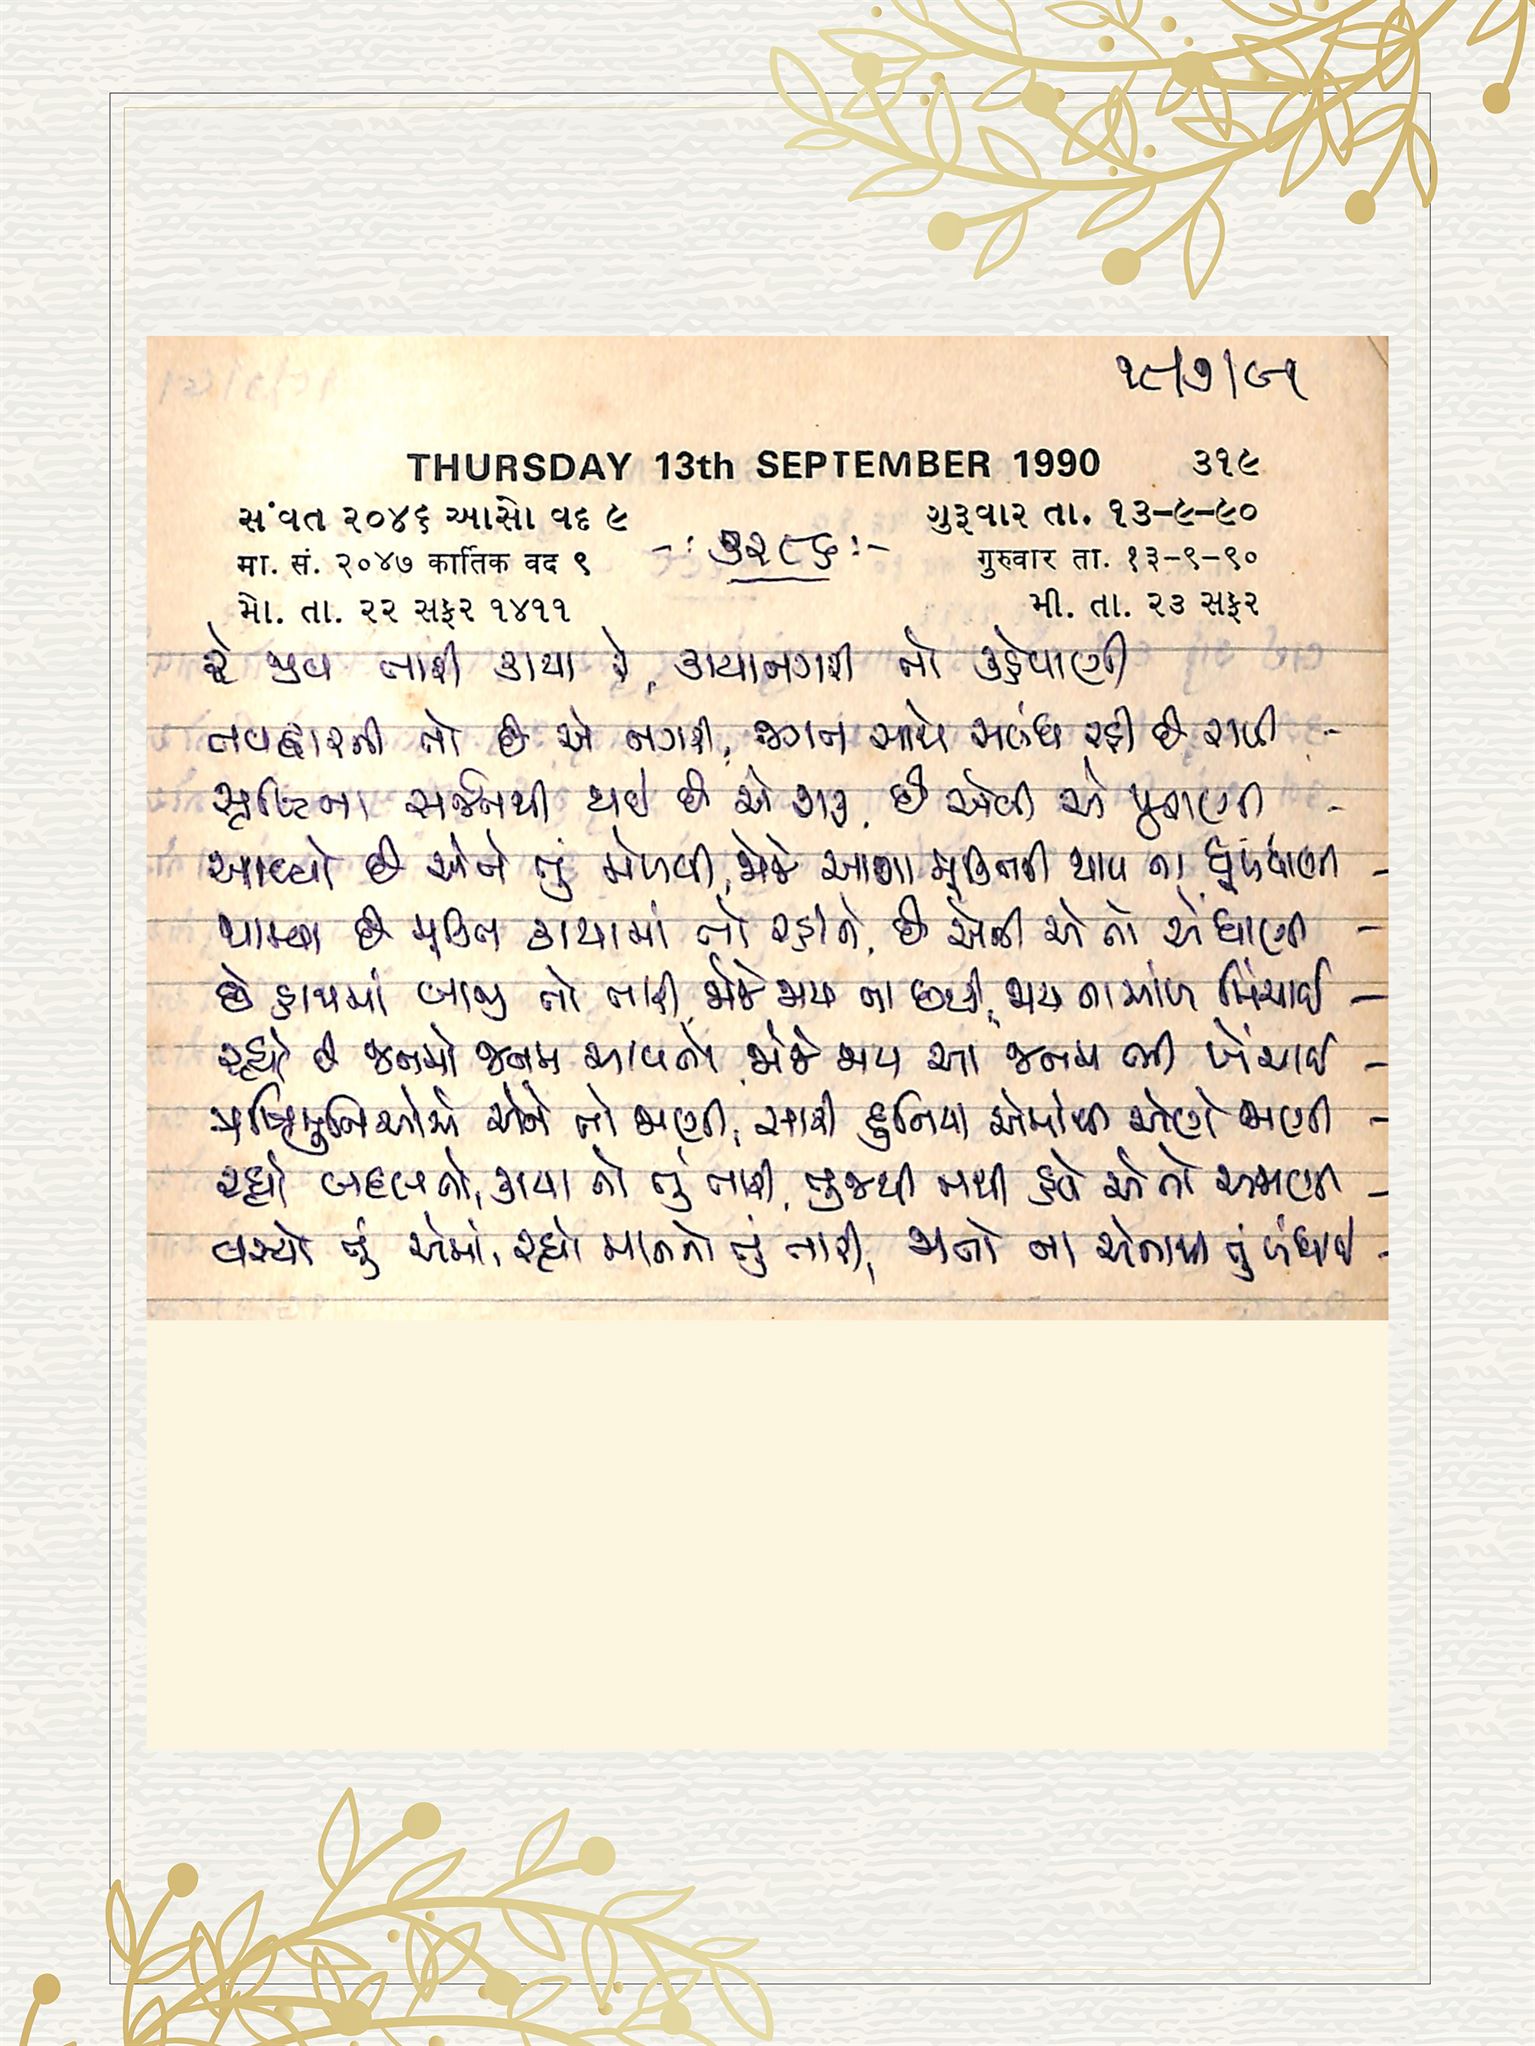 ૧૮/૭/૯૧
THURSDAY 13th SEPTEMBER 1990 ૩૧૯
સંવત ૨૦૪૬ આસો વદ ૯ ગુરૂવાર તા. ૧૩-૯-૯૦
मा. सं. २०४७ कार्तिक वद ९ गुरुवार ता. १३-९-९०
મો. તા. ૨૨ સફર ૧૪૧૧ મી. તા. ૨૩ સફર
-: ૩૨૮૬ :-
રે જીવ તારી કાયા રે, કાયાનગરી તો કહેવાણી
નવદ્વારની તો છે એ નગરી, જગત સાથે સબંધ રહી છે રાખી -
સૃષ્ટિના સર્જનથી થઈ છે એ શરૂ, છે એવી એ પુરાણી -
આવ્યો છે એને તું મેળવી, જોજે આશા મુક્તિની થાય ના ધૂળધાણી -
પામ્યા છે મુક્તિ કાયામાં તો રહીને, છે એની એ તો એંધાણી -
છે હાથમાં બાજી તો તારી, જોજે જાય ના છૂટી, જાય ના આંખ મિંચાઈ -
રહ્યો છે જનમો જનમ આવતો, જોજે જાય આ જનમ ના ખેંચાઈ -
ઋષિમુનિઓએ એને તો જાણી, સારી દુનિયા એમાંથી એણે જાણી -
રહ્યો બદલતો, કાયા તો તું તારી, તુજથી નથી કાંઈ એ તો અજાણી -
વસ્યો તું એમાં, રહ્યો માનતો તું તારી, જાતો ના એનાથી તું બંધાઈ -